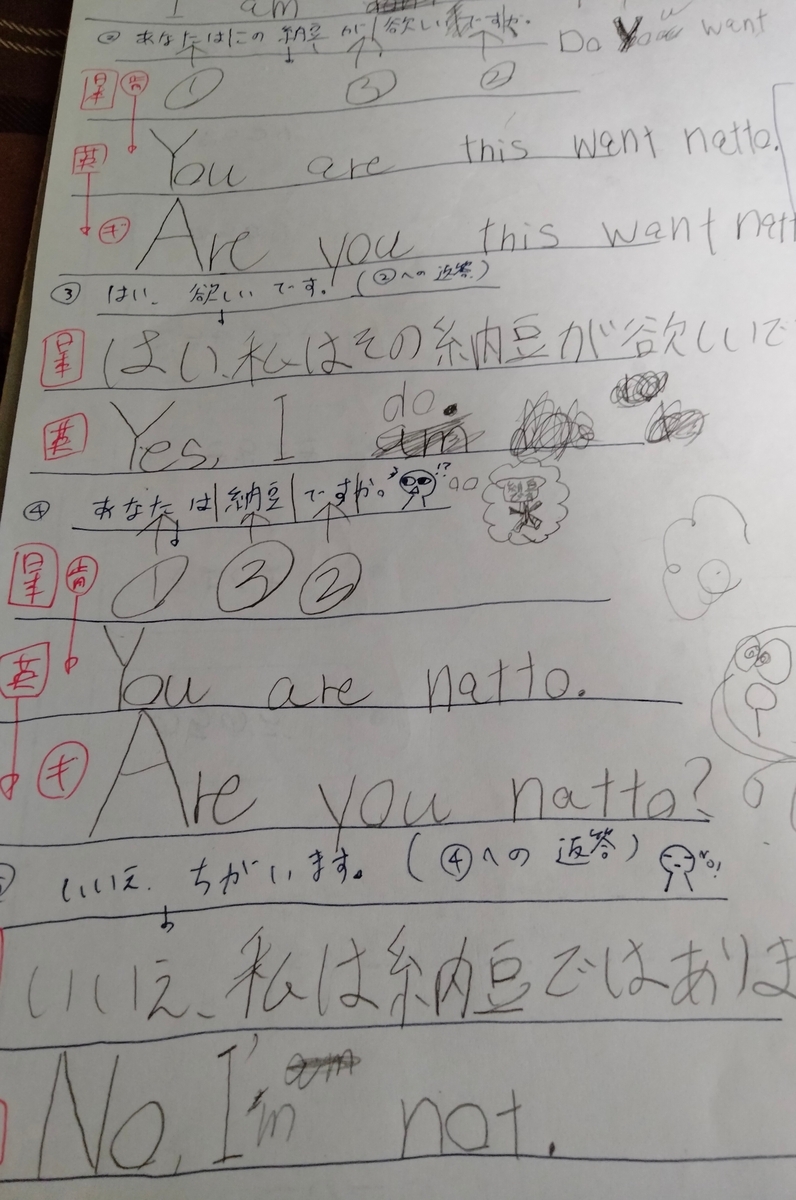 I am
② あなたはこの納豆が欲しいですか。 Do You want
① ③ ②
肯
You are this want natto.
英
Are you this want natt
ギ
③ はい、欲しいです。(②への返答)
はい、私はその納豆が欲しいで
英 Yes, I do.
④ あなたは納豆ですか。 !?
肯 ① ③ ②
英 You are natto.
ギ Are you natto?
いいえ、ちがいます。(④への返答) No!
いいえ、私は納豆ではありま
No, I'm not.